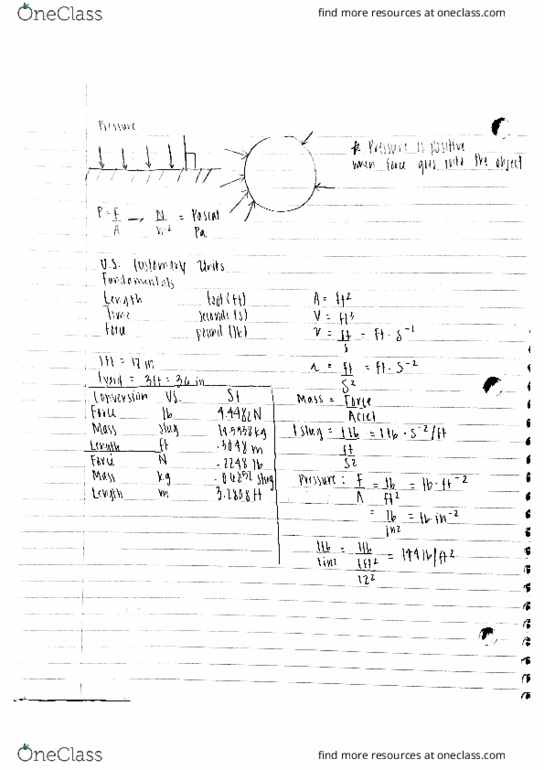 OneClass
find more resources at oneclass.com
Pressure
* Pressure is positive
when force goes into the object
P = F/A → N/m² = Pascal
Pa
U.S. Customary Units
Fundamentals
Length foot (ft)
Time seconds (s)
Force pound (lb)
1ft = 12 in
1yard = 3ft = 36 in
Conversion US. SI
Force lb 4.4482 N
Mass slug 14.5938 kg
Length ft .3048 m
Force N .2248 lb
Mass kg .06852 slug
Length m 3.2808 ft
A = ft²
V = ft³
v = ft/s = ft · s⁻¹
a = ft/s² = ft · s⁻²
Mass = Force/Accel
1 slug = 1lb/(ft/s²) = 1lb · s⁻²/ft
Pressure : F/A = lb/ft² = lb · ft⁻²
= lb/in² = lb · in⁻²
1lb/1in² = 1lb/(1ft²/12²) = 144 lb/ft²
OneClass
find more resources at oneclass.com